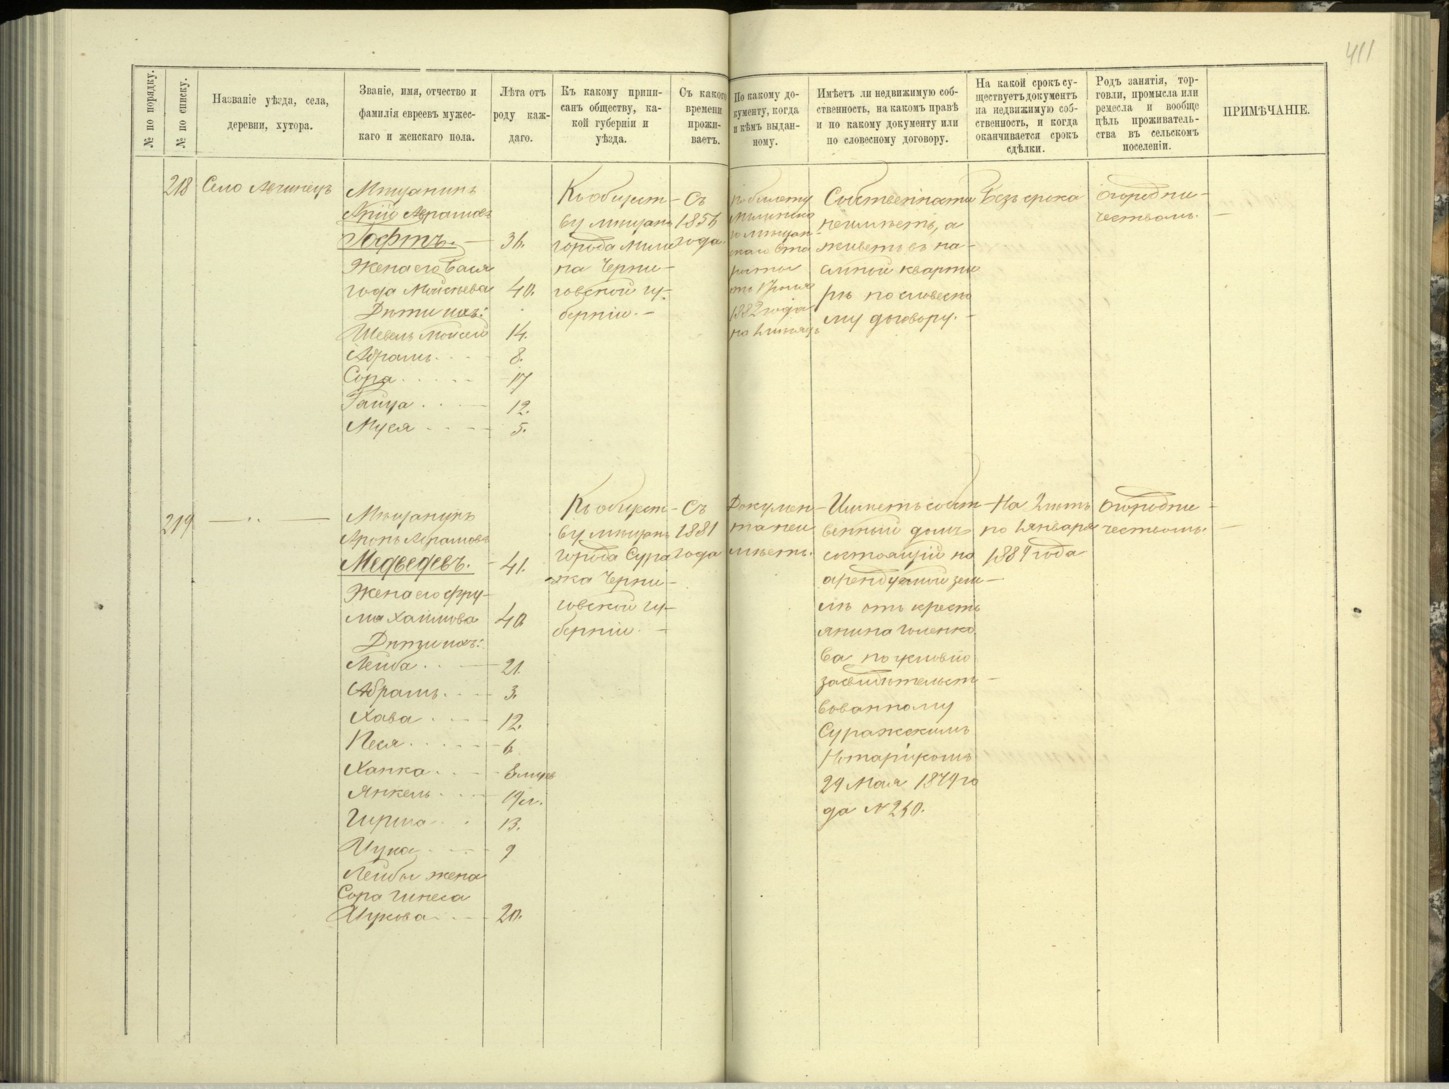 411
№ по порядку.
№ по списку.
Названіе уѣзда, села,
деревни, хутора.
Званіе, имя, отчество и
фамилія евреевъ мужес-
каго и женскаго пола.
Лѣта отъ
роду каж-
даго.
Къ какому припи-
санъ обществу, ка-
кой губерніи и
уѣзда.
Съ какого
времени
прожи-
ваетъ.
По какому до-
кументу, когда
и кѣмъ выдан-
ному.
Имѣетъ ли недвижимую соб-
ственность, на какомъ правѣ
и по какому документу или
по словесному договору.
На какой срокъ су-
ществуетъ документъ
на недвижимую соб-
ственность, и когда
оканчивается срокъ
сдѣлки.
Родъ занятія, тор-
говли, промысла или
ремесла и вообще
цѣль проживатель-
ства въ сельскомъ
поселеніи.
ПРИМѢЧАНІЕ.
218
Село
Мѣщанинъ
Абрамовъ
Гофтъ. 36.
Жена его Бася
40.
Дѣти ихъ:
Шевель 14.
Абрамъ 8.
Сора 17
Ганца 12.
Муся 5.
Къ общест-
ву мѣщанъ
города
на Черни-
говской гу-
берніи.
Съ
1856
года.
по билету
1882 года
Собственности
неимѣетъ, а
живетъ въ на-
емной кварти
рѣ по словесно
му договору.
Безъ срока
огородни-
чествомъ.
219
Мѣщанинъ
Аронъ Абрамовъ
Медведевъ. 41.
Жена его Фру-
ма Хаимова 40
Дѣти ихъ:
Лейба 21.
Абрамъ 3.
Хава 12.
Песя 6
Ханка
Янкель 19
Гирша 13.
Ицка 9
Лейбы жена
Сора
Ицкова 20.
Къ общест-
ву мѣщанъ
города Сура
жа Черни-
говской гу-
берніи.
Съ
1881
года
Докумен-
та неи
мѣетъ.
Имѣетъ собст-
венный домъ
состоящій на
арендуемой зем-
лѣ отъ кресть
янина
ва по условію
засвидѣтельст-
вованному
Суражскимъ
Нотаріусомъ
29 Мая 1879 го
да №
На
по 1 января
1889 года
огородни-
чествомъ.